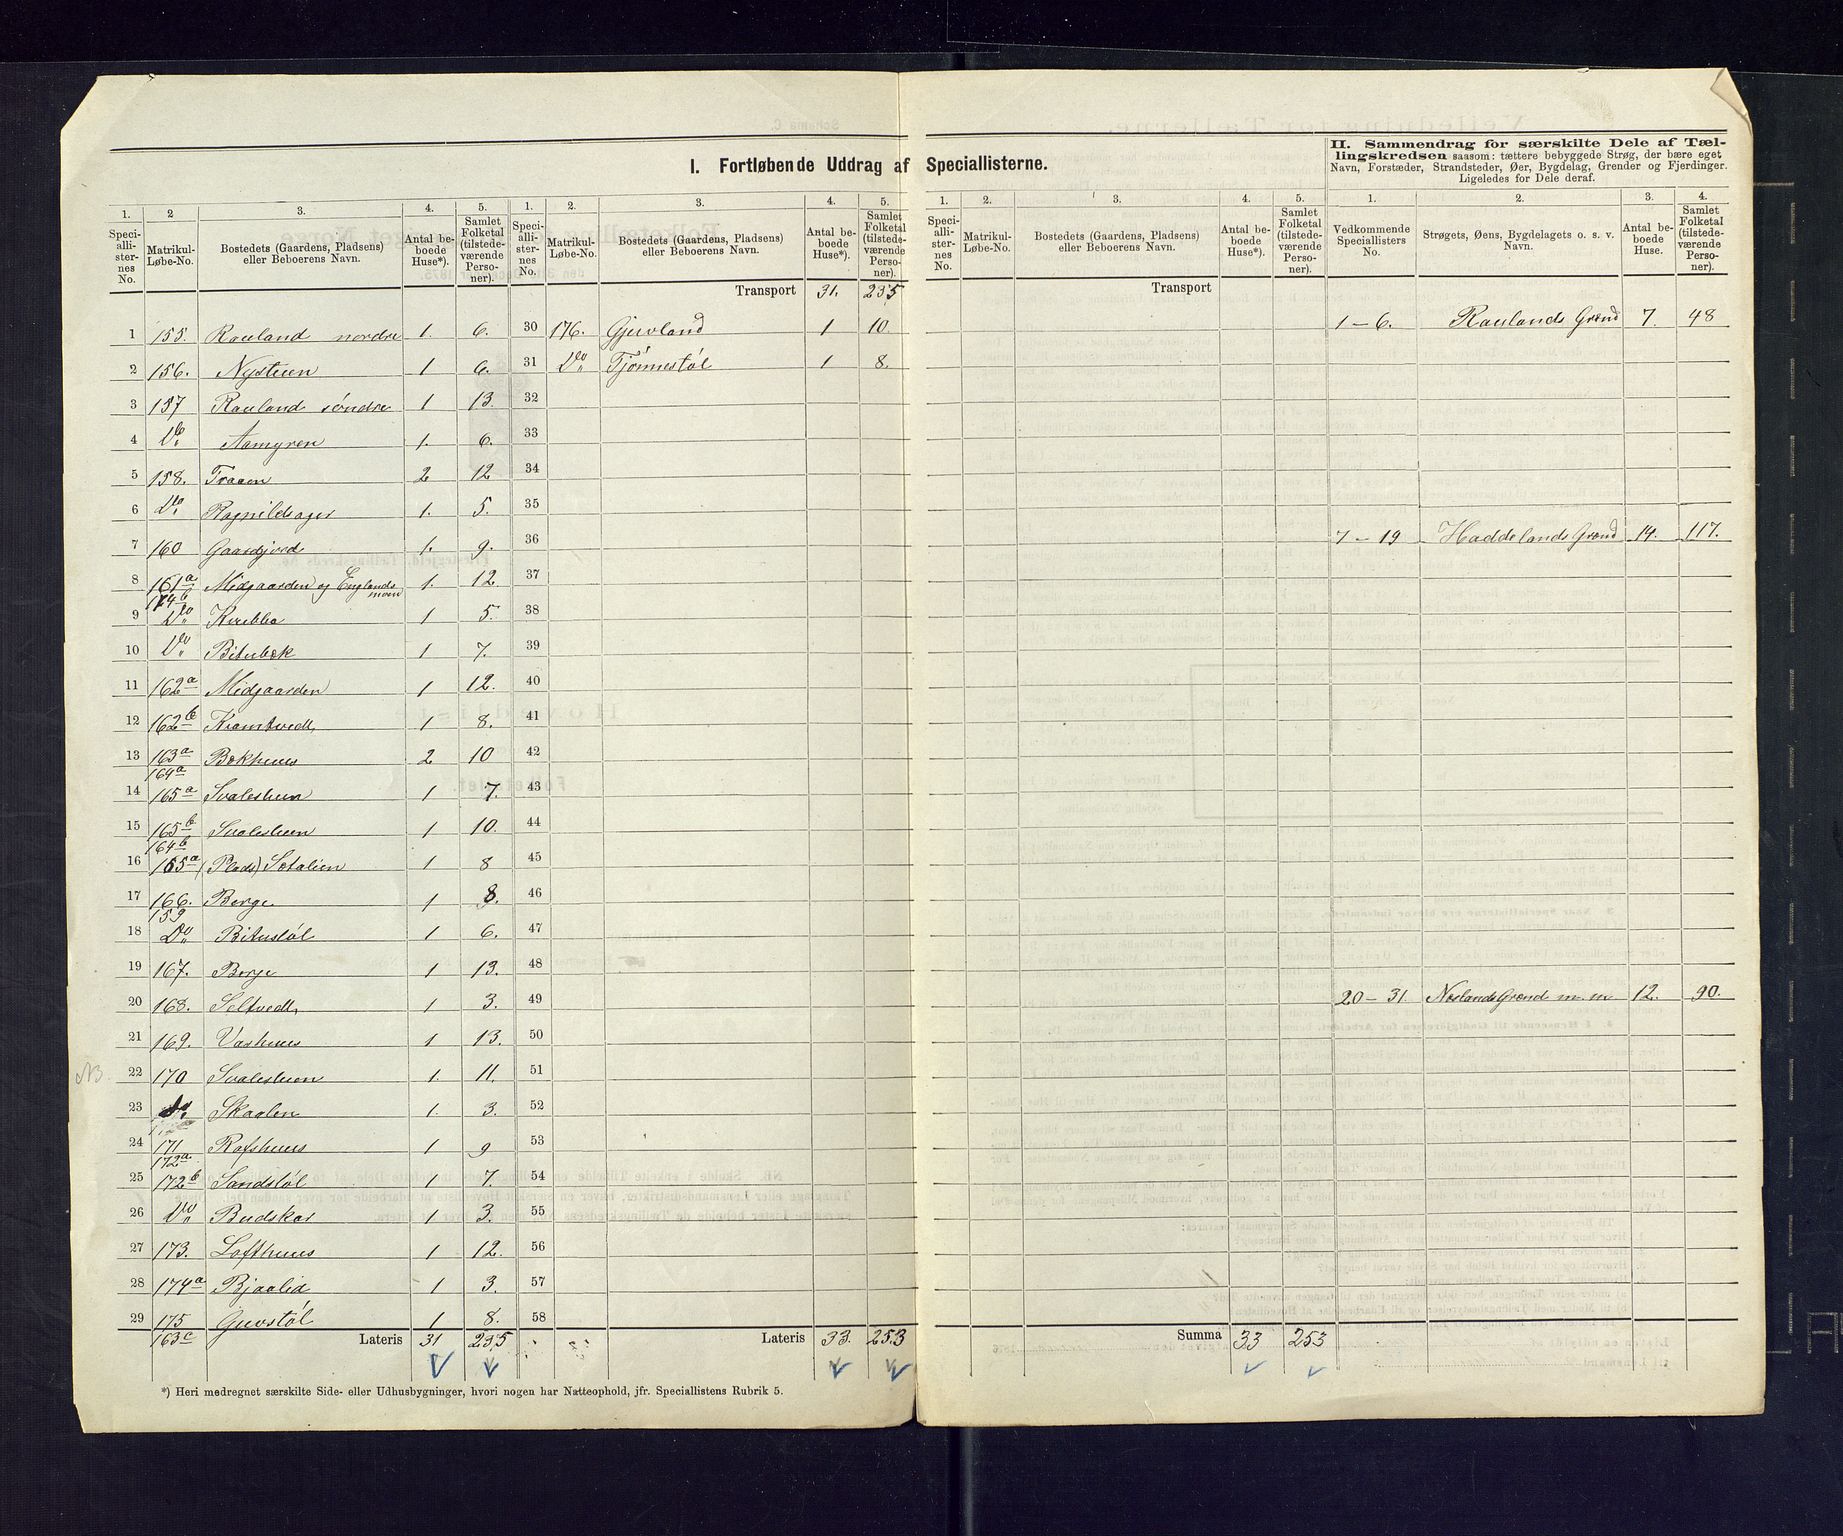 I. Fortløbende Uddrag af Speciallisterne.
II. Sammendrag for særskilte Dele af Tæl-
lingskredsen saasom: tættere bebyggede Strøg, der bære eget
Navn, Forstæder, Strandsteder, Øer, Bygdelag, Grender og Fjerdinger.
Ligeledes for Dele deraf.
1. 2 3. 4. 5. 1. 2. 3. 4. 5. 1. 2. 3. 4. 5. 1. 2. 3. 4.
Speciallisternes No. Matrikul-Løbe-No. Bostedets (Gaardens, Pladsens) eller Beboerens Navn. Antal beboede Huse*). Samlet Folketal (tilstedeværende Personer).
Speciallisternes No. Matrikul-Løbe-No. Bostedets (Gaardens, Pladsens) eller Beboerens Navn. Antal beboede Huse*). Samlet Folketal (tilstedeværende Personer).
Speciallisternes No. Matrikul-Løbe-No. Bostedets (Gaardens, Pladsens) eller Beboerens Navn. Antal beboede Huse*). Samlet Folketal (tilstedeværende Personer).
Vedkommende Speciallisters No. Strøgets, Øens, Bygdelagets o. s. v. Navn. Antal beboede Huse. Samlet Folketal (tilstedeværende Personer).
Transport 31. 235 Transport
1 155. Rauland nordre 1. 6. 30 176. Gjuvland 1 10. 1-6. Raulands Grend 7. 48
2 156. Nystuen 1 6. 31 Do Tjønnestøl 1 8.
3 157 Rauland søndre 1 13. 32
4 Do Aamyren 1. 6. 33
5 158. Traaen 2 12 34
6 Do Ragnildsager 1. 5. 35
7 160 Gaardjord 1. 9. 36 7-19 Haddelands Grend 14. 117.
8 161a Midgaarden og Englandsmoen 1. 12 37
174b
9 Do 1 5. 38
10 Do Bitubæk 1 7. 39
11 162a Midgaarden 1 12. 40
12 162b Kramtvedt 1 8. 41
13 163a Bækhuus 2 10 42
164a
14 165a Svalestuen 1 7. 43
15 165b Svalestuen 1 10. 44
164b
16 165a (Plads) Sætalien 1 8 45
17 166. Berge 1 8. 46
159
18 Do Bitustøl 1 6. 47
19 167. Berge 1 13. 48
20 168. Seltvedt 1 3. 49 20-31. Neslands Grend m. m 12. 90.
21 169. Vashuus 1 13. 50
NB. 22 170 Svalestuen 1. 11. 51
23 Do. Skaalen 1. 3. 52
24 171 Rofshuus 1 9 53
172a
25 172b Sandstøl 1 7. 54
26 Do Budskar 1 3. 55
27 173. Lofthuus 1 12. 56
28 174a Bjaalid 1 3. 57
29 175 Gjuvstøl 1 8. 58
163c Lateris 31 235 Lateris 33. 253 Summa 33 253
*) Heri medregnet særskilte Side- eller Udhusbygninger, hvori nogen har Natteophold, jfr. Speciallistens Rubrik 5.